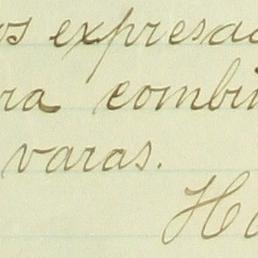 os expresad
ra combin
varas.
Ha